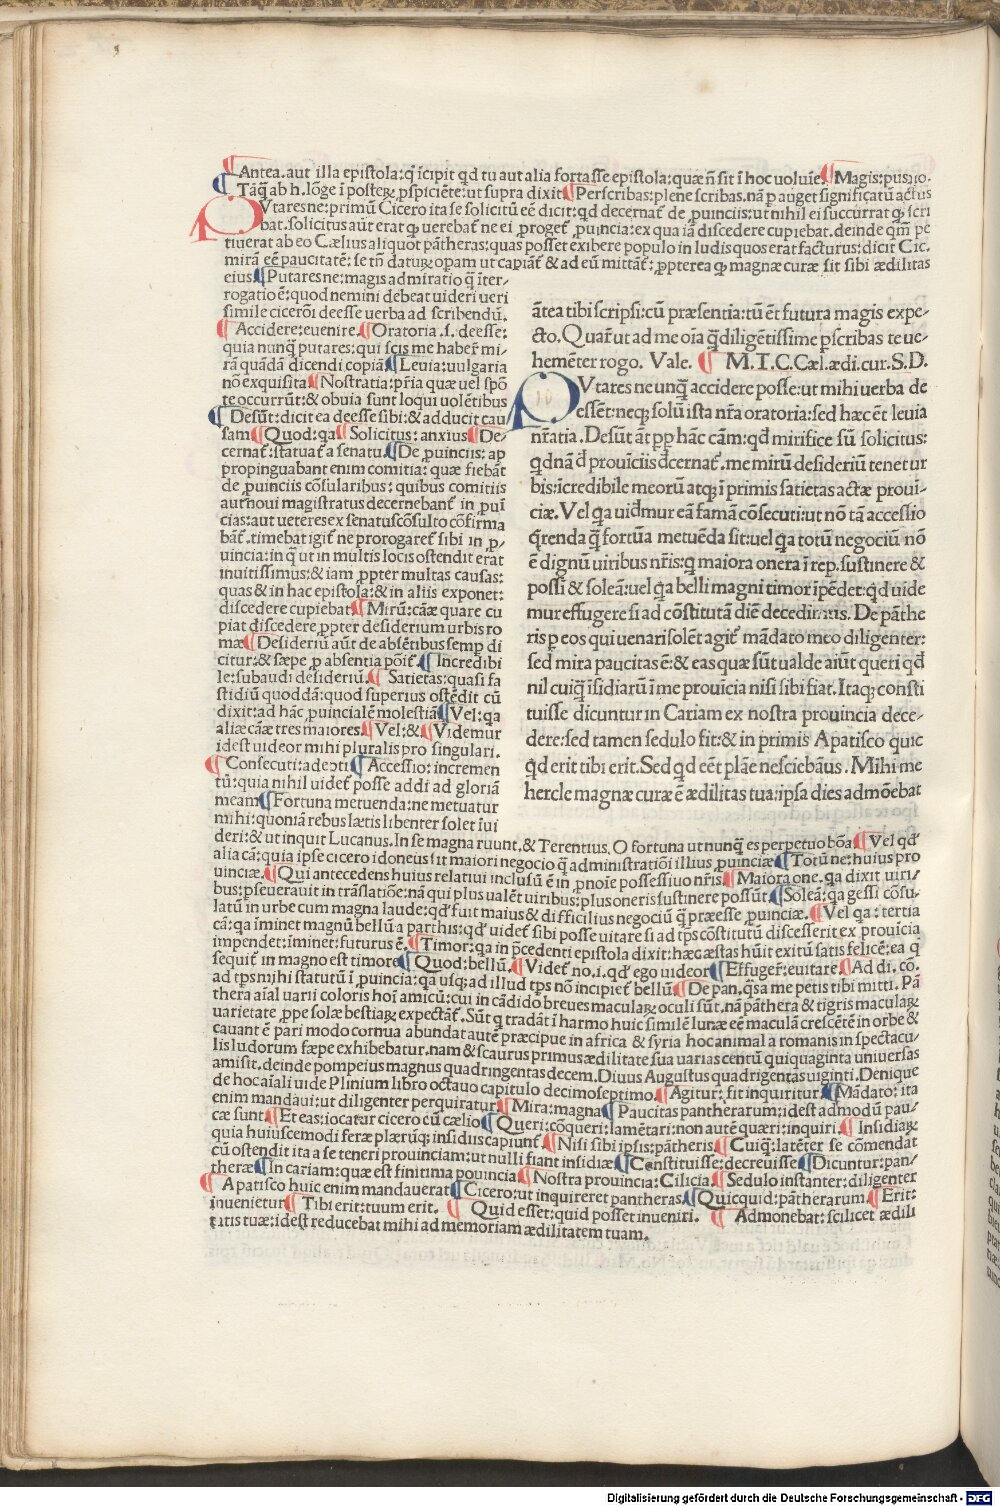 Antea.aut illa epistola:q̄ īcipit qd tu aut alia fortasse epistola:quæ n̄ sit ī hoc uoluīe.¶Magis:
Tāq̄ ab h.lōge ī posteꝝ ꝓspiciēte:ut supra dixit¶Perscribas:plene scribas.nā ꝑ auget significatū actus
PVtares ne:primū Cicero ita se solicitū eē dicit:qd decernat᷑ de ꝓuinciis:ut nihil ei succurrat qꝫ scri
bat.solicitus aūt erat qꝫ uerebat᷑ ne ei ꝓroget᷑ ꝓuincia:ex qua iā discedere cupiebat.deinde qm̄ pe
tiuerat ab eo Cælius aliquot pātheras:quas posset exibere populo in ludis quos erat facturus:dicit Cic.
mirā eē paucitatē:se tn̄ daturꝝ opam ut capiāt᷑ & ad eū mittāt᷑:ꝓpterea qꝫ magnæ curæ sit sibi ædilitas
eius¶Putares ne:magis admiratio q̄ īter-
rogatio ē:quod nemini debeat uideri ueri
simile cicerōi deesse uerba ad scribendū.
¶Accidere:euenire.¶Oratoria.s.deesse:
quia nunq̄ putares:qui scis me haber᷑ mi-
rā quādā dicendi copiā¶Leuia:uulgaria
nō exquisita¶Nostratia:pr̄ia quæ uel spō
te occurrūt:& obuia sunt loqui uolētibus
¶Desūt:dicit ea deesse sibi:& adducit cau
sam¶Quod:qa¶Solicitus:anxius¶De-
cernat᷑:statuat᷑ a senatu.¶De ꝓuinciis:ap
propinquabant enim comitia:quæ fiebāt
de ꝓuinciis cōsularibus:quibus comitiis
aut noui magistratus decernebant᷑ in puī
cias:aut ueteres ex senatuscōsulto cōfirma
bāt᷑.timebat igit᷑ ne prorogaret᷑ sibi in ꝓ-
uincia:in q̄ ut in multis locis ostendit erat
inuitissimus:& iam ꝓpter multas causas:
quas & in hac epistola:& in aliis exponet:
discedere cupiebat¶Mirū:cāæ quare cu
piat discedere ꝓpter desiderium urbis ro
mæ¶Desideriū aūt de absētibus semp di
citur:& sæpe ꝓ absentia pōit᷑.¶Incredibi
le:subaudi desideriū.¶Satietas:quasi fa
stidiū quoddā:quod superius ostēdit cū
dixit:ad hāc ꝓuincialē molestiā¶Vel:qa
aliæ cāæ tres maiores¶Vel:&¶Videmur
idest uideor mihi pluralis pro singulari.
¶Consecuti:adepti¶Accessio:incremen
tū:quia nihil uidet᷑ posse addi ad gloriā
meam¶Fortuna metuenda:ne metuatur
mihi:quoniā rebus lætis libenter solet īui
deri:& ut inquit Lucanus.In se magna ruunt,& Terentius.O fortuna ut nunq̄ es perpetuo bōa¶Vel qd
alia cā:quia ipse cicero idoneus sit maiori negocio q̄ administratiōi illius ꝓuinciæ¶Totū ne:huius pro
uinciæ.¶Qui antecedens huius relatiui inclusū ē in ꝓnoīe possessiuo nr̄is.¶Maiora one.qa dixit uiri-
bus:ꝑseuerauit in trāslatiōe:nā qui plus ualēt uiribus:plus oneris sustinere possūt¶Soleā:qa gessi cōsu-
latū in urbe cum magna laude:qd fuit maius & difficilius negociū q̄ præesse ꝓuinciæ.¶Vel qa:tertia
cā:qa īminet magnū bellū a parthis:qd uidet᷑ sibi posse uitare si ad tꝑs cōstitutū discesserit ex prouīcia
impendet:iminet:futurus ē.¶Timor:qa in p̄cedenti epistola dixit:hæc æstas hūit exitū satis felicē:ea q̄
sequit᷑ in magno est timore¶Quod:bellū.¶Videt᷑ no.i.qd ego uideor¶Effuger᷑:euitare¶Ad di.co.
ad tꝑs mihi statutū ī ꝓuincia:qa usqꝫ ad illud tꝑs nō incipiet᷑ bellū¶De pan.q̄s a me petis tibi mitti.Pā
thera aīal uarii coloris hoī amicū:cui in cādido breues maculaꝝ oculi sūt.nā pāthera & tigris maculaꝝ
uarietate ꝓpe solæ bestiaꝝ expectāt᷑.Sūt q̄ tradāt ī harmo huic similē lunæ eē maculā crescētē in orbe &
cauant ē pari modo cornua abundat autē præcipue in africa & syria hoc animal a romanis in spectacu-
lis ludorum sæpe exhibebatur.nam & scaurus primus ædilitate sua uarias centū quiquaginta uniuersas
amisit.deinde pompeius magnus quadringentas decem.Diuus Augustus quadrigentas uiginti.Denique
de hoc aīali uide Plinium libro octauo capitulo decimoseptimo.¶Agitur:fit inquiritur¶Mādato:ita
enim mandaui:ut diligenter perquiratur¶Mira:magna¶Paucitas pantherarum:idest admodū pau-
cæ sunt¶Et eas:iocatur cicero cū cælio¶Queri:cōqueri:lamētari:non autē quæri:inquiri.¶Insidiaꝝ
quia huiuscemodi feræ plærūqꝫ insidiis capiunt᷑¶Nisi sibi ipsis:pātheris¶Cuiq̄:latēter se cōmendat
cū ostendit ita a se teneri prouinciam:ut nulli fiant insidiæ¶Constituisse:decreuisse¶Dicuntur:pan-
theræ¶In cariam:quæ est finitima ꝓuincia¶Nostra prouincia:Cilicia¶Sedulo instanter:diligenter
¶Apatisco huic enim mandauerat Cicero:ut inquireret pantheras¶Quicquid:pātherarum¶Erit:
inuenietur¶Tibi erit:tuum erit.¶Quid esset:quid posset inueniri.¶Admonebat:scilicet ædili
tatis tuæ:idest reducebat mihi ad memoriam ædilitatem tuam.
āte a tibi scripsi:cū præsentia:tū ēt futura magis expe-
cto.Quar᷑ ut ad me oīa q̄diligētissime ꝑscribas te ue-
hemēter rogo. Vale. ¶M.T.C.Cæl.ædi.cur.S.D.
PVtares ne unq̄ accidere posse:ut mihi uerba de
essēt:neqꝫ solū ista nr̄a oratoria:sed hæc ēt leuia
nr̄atia.Desūt āt ꝓp hāc cām:qd mirifice sū solicitus:
qdnā d̄ prouīciis d̄cernat᷑.me mirū desideriū tenet ur
bis:īcredibile meorū atqꝫ ī primis satietas actæ prouī-
ciæ.Vel qa uid̄mur eā famā cōsecuti:ut nō tā accessio
q̄renda q̄ fortūa metuēda sit:uel qa totū negociū nō
ē dignū uiribus nr̄is:q̄ maiora onera ī rep.sustinere &
possī & soleā:uel qa belli magni timor īpēdet:qd uide
mur effugere si ad cōstitutā diē decedimus.De pāthe
ris ꝑ eos qui uenari solēt agit᷑ mādato meo diligenter:
sed mira paucitas ē:& eas quæ sūt ualde aiūt queri qd
nil cuiq̄ īsidiarū ī me prouīcia nisi sibi fiat.Itaqꝫ consti
tuisse dicuntur in Cariam ex nostra prouincia dece-
dere:sed tamen sedulo fit:& in primis Apatisco quic
qd erit tibi erit.Sed qd eēt plāe nesciebāus.Mihi me
hercle magnæ curæ ē ædilitas tua:ipsa dies admōebat
Digitalisierung gefördert durch die Deutsche Forschungsgemeinschaft - DFG